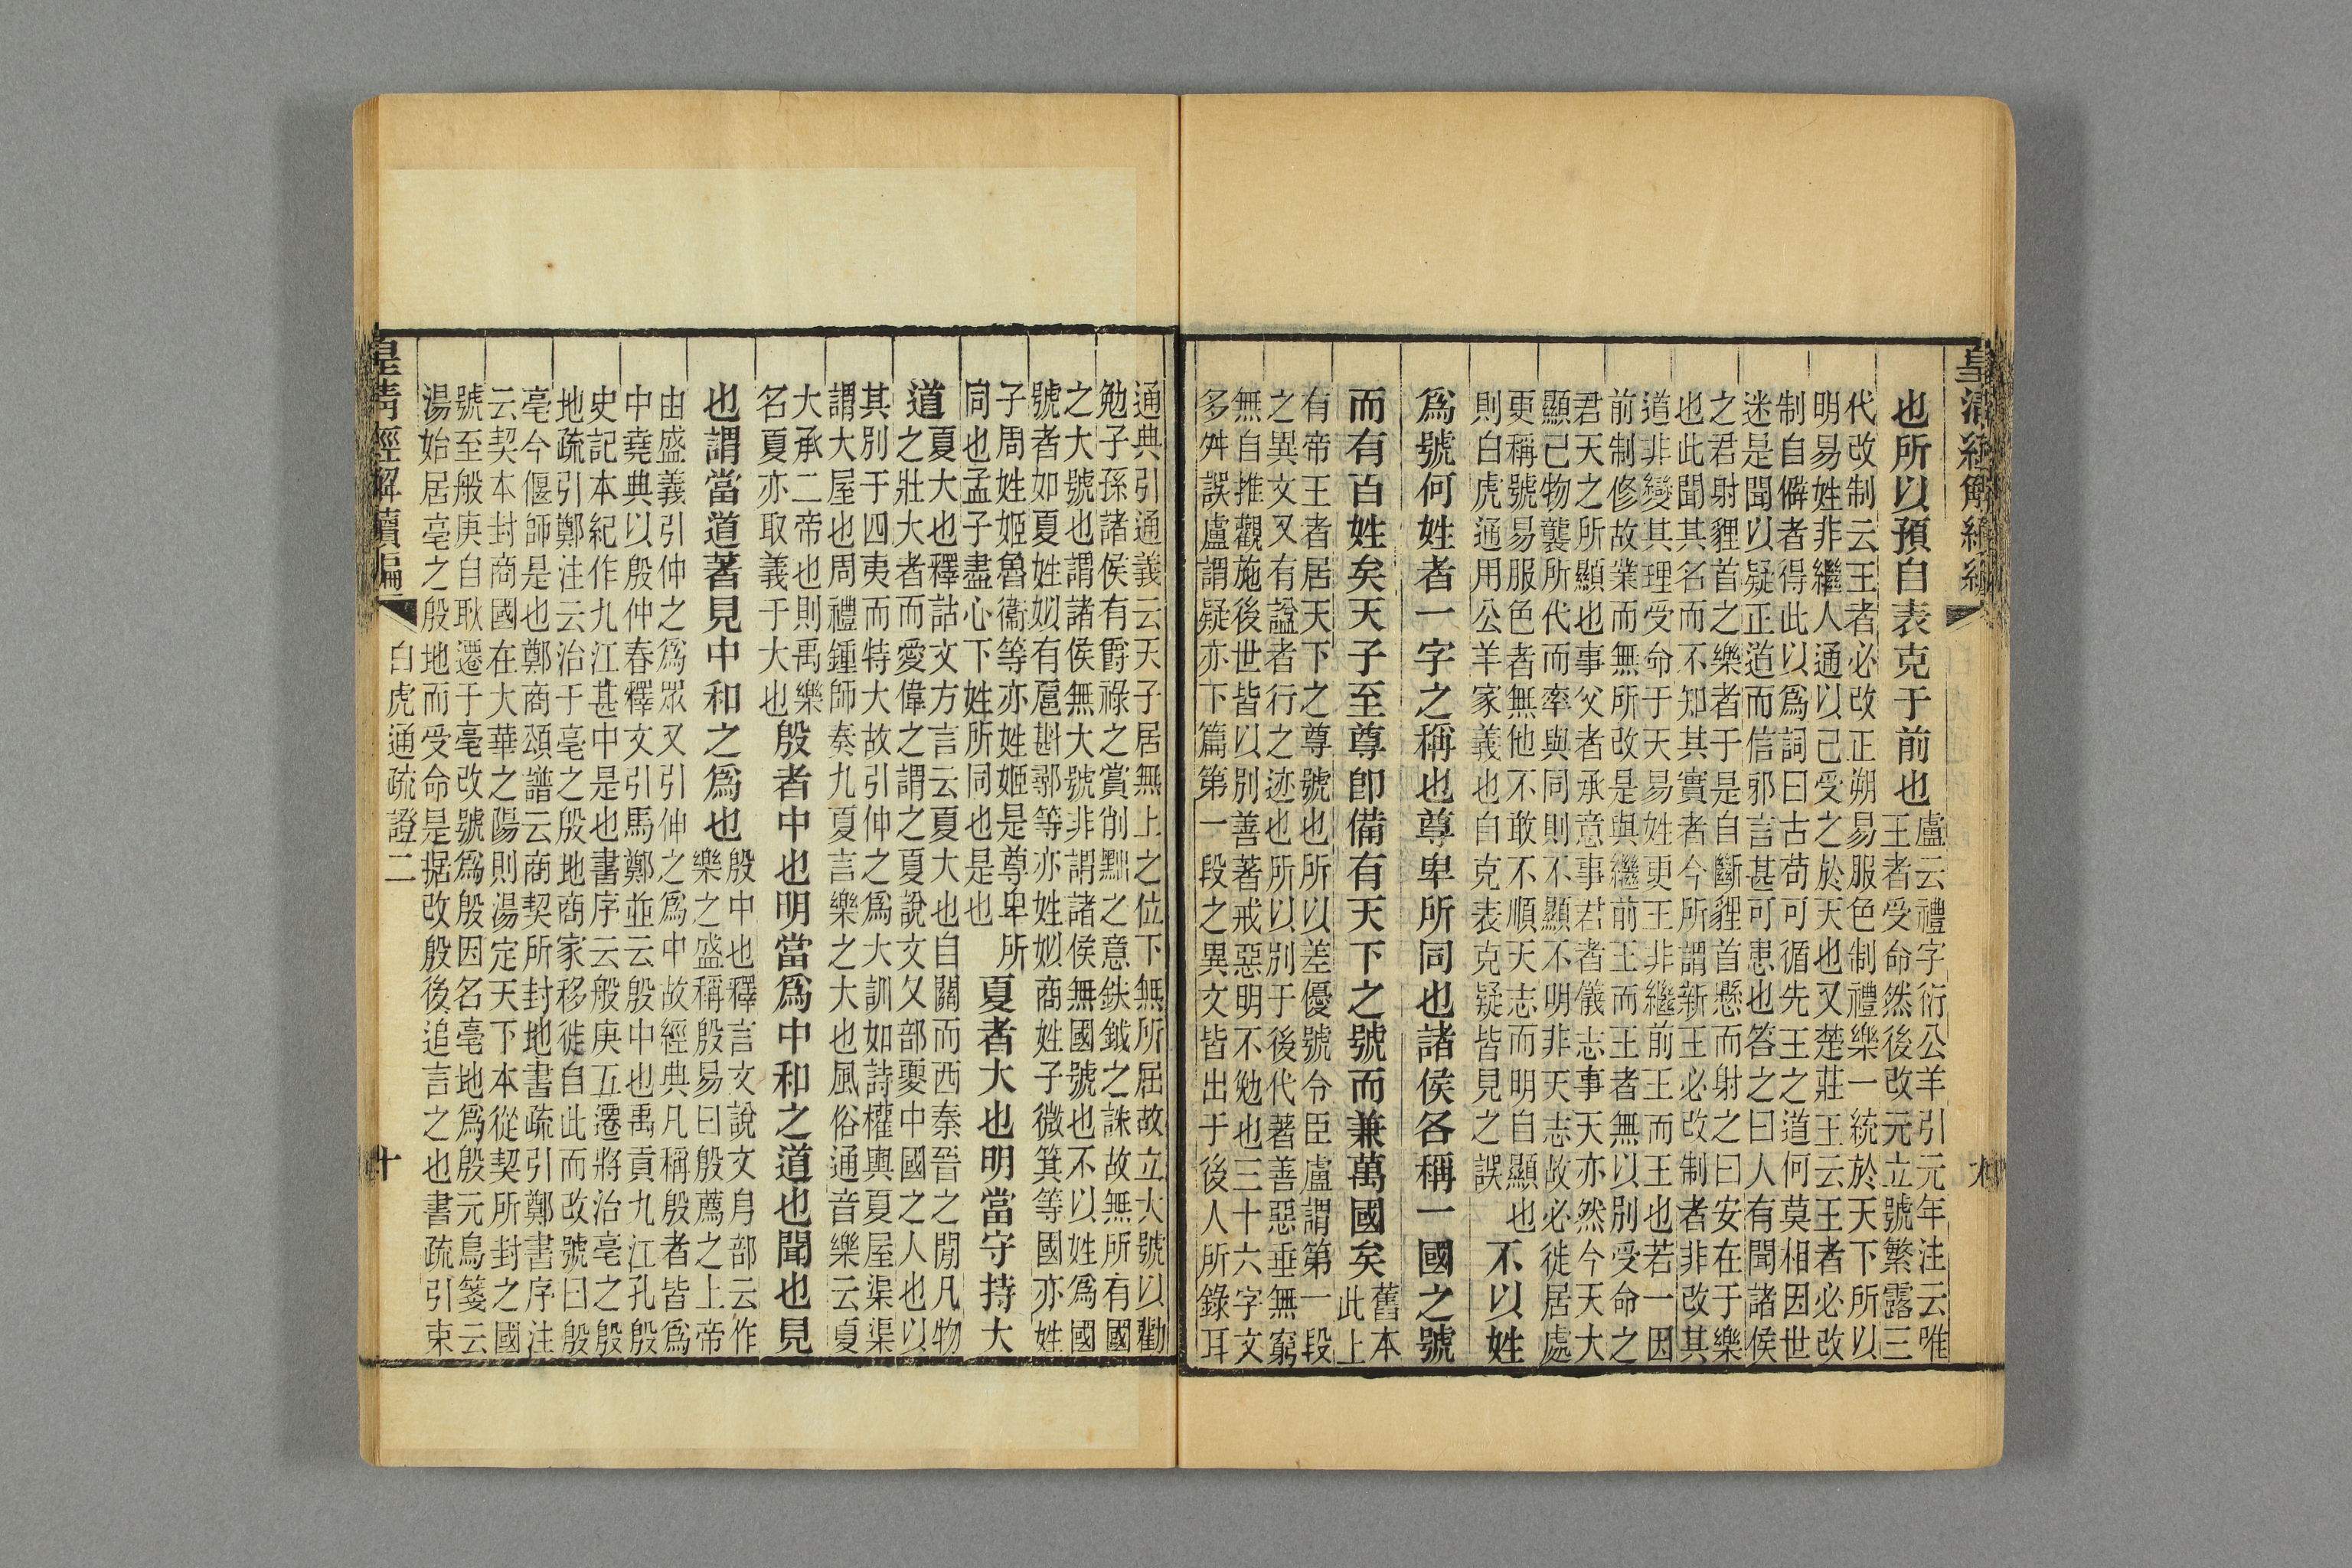 皇清經解續編
九
也所以預自表克于前也
盧云禮字衍公羊引元年注云唯
王者受命然後改元立號繁露三
代改制云王者必改正朔易服色制禮樂一統於天下所以
明易姓非繼人通以己受之於天也又楚莊王云王者必改
制自僻者得此以爲詞曰古苟可循先王之道何莫相因世
迷是聞以疑正道而信邪言甚可患也答之曰人有聞諸侯
之君射貍首之樂者于是自斷貍首懸而射之曰安在于樂
也此聞其名而不知其實者今所謂新王必改制者非改其
道非變其理受命于天易姓更王非繼前王而王也若一因
前制修故業而無所改是與繼前王而王者無以別受命之
君天之所顯也事父者承意事君者儀志事天亦然今天大
顯已物襲所代而率與同則不顯不明非天志故必徙居處
更稱號易服色者無他不敢不順天志而明自顯也
則白虎通用公羊家義也自克表克疑皆見之誤
不以姓
爲號何姓者一字之稱也尊卑所同也諸侯各稱一國之號
而有百姓矣天子至尊卽備有天下之號而兼萬國矣
舊本
此上
有帝王者居天下之尊號也所以差優號令臣盧謂第一段
之異文又有謚者行之迹也所以別于後代著善惡垂無窮
無自推觀施後世皆以別善著戒惡明不勉也三十六字文
多舛誤盧謂疑亦下篇第一段之異文皆出于後人所錄耳
通典引通義云天子居無上之位下無所屈故立大號以勸
勉子孫諸侯有爵祿之賞削黜之意鈇鉞之誅故無所有國
之大號也謂諸侯無大號非謂諸侯無國號也不以姓爲國
號者如夏姓姒有扈斟鄩等亦姓姒商姓子微箕等國亦姓
子周姓姬魯衞等亦姓姬是尊卑所
同也孟子盡心下姓所同也是也
夏者大也明當守持大
道
夏大也釋詁文方言云夏大也自關而西秦晉之閒凡物
之壯大者而愛偉之謂之夏說文夊部夓中國之人也以
其別于四夷而特大故引伸之爲大訓如詩權輿夏屋渠渠
謂大屋也周禮鍾師奏九夏言樂之大也風俗通音樂云夏
大承二帝也則禹樂
名夏亦取義于大也
殷者中也明當爲中和之道也聞也見
也謂當道著見中和之爲也
殷中也釋言文說文㐆部云作
樂之盛稱殷易曰殷薦之上帝
由盛義引伸之爲眾又引伸之爲中故經典凡稱殷者皆爲
中堯典以殷仲春釋文引馬鄭並云殷中也禹貢九江孔殷
史記本紀作九江甚中是也書序云般庚五遷將治亳之殷
地疏引鄭注云治于亳之殷地商家移徙自此而改號曰殷
亳今偃師是也鄭商頌譜云商契所封地書疏引鄭書序注
云契本封商國在大華之陽則湯定天下本從契所封之國
號至般庚自耿遷于亳改號爲殷因名亳地爲殷元鳥箋云
湯始居亳之殷地而受命是据改殷後追言之也書疏引束
皇清經解續編
白虎通疏證二
十